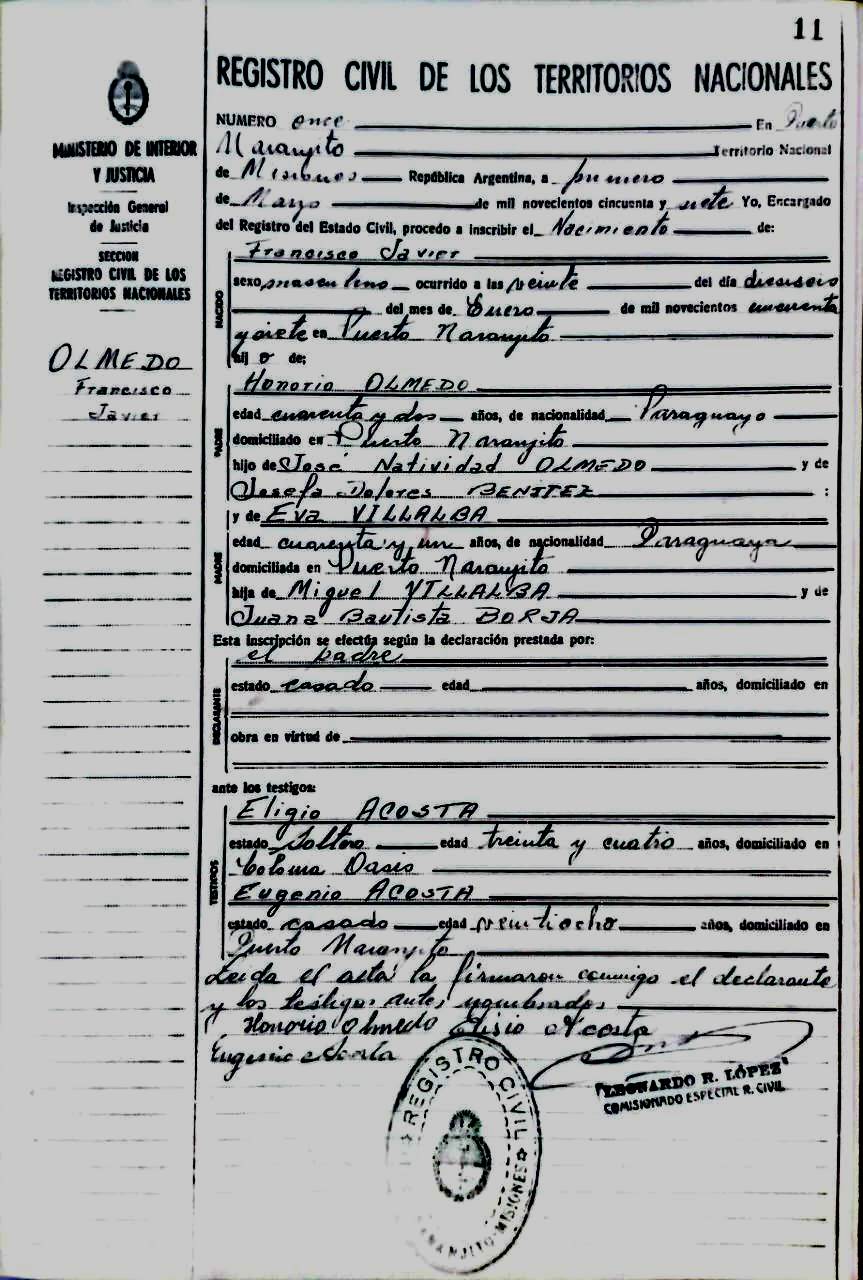 11
REGISTRO CIVIL DE LOS TERRITORIOS NACIONALES
MINISTERIO DE INTERIOR
Y JUSTICIA
Inspección General
de Justicia
SECCION
REGISTRO CIVIL DE LOS
TERRITORIOS NACIONALES
OLMEDO
Francisco
Javier
NUMERO once En Puerto
Naranjito Territorio Nacional
de Misiones República Argentina, a primero
de Marzo de mil novecientos cincuenta y siete Yo, Encargado
del Registro del Estado Civil, procedo a inscribir el Nacimiento de:
NACIDO
Francisco Javier
sexo masculino ocurrido a las veinte del día dieciseis
del mes de Enero de mil novecientos cincuenta
y siete en Puerto Naranjito
hij o de:
PADRE
Honorio OLMEDO
edad cuarenta y dos años, de nacionalidad Paraguayo
domiciliado en Puerto Naranjito
hijo de José Natividad OLMEDO y de
Josefa Dolores BENITEZ :
MADRE
y de Eva VILLALBA
edad cuarenta y un años, de nacionalidad Paraguaya
domiciliada en Puerto Naranjito
hija de Miguel VILLALBA y de
Juana Bautista BORJA
Esta inscripción se efectúa según la declaración prestada por:
DECLARANTE
el padre
estado casado edad años, domiciliado en
obra en virtud de
ante los testigos:
TESTIGOS
Eligio ACOSTA
estado Soltero edad treinta y cuatro años, domiciliado en
Colonia Oasis
Eugenio ACOSTA
estado casado edad veintiocho años, domiciliado en
Puerto Naranjito
Leida el acta la firmaron conmigo el declarante
y los testigos antes nombrados
Honorio Olmedo Elisio Acosta
Eugenio Acosta
"LEONARDO R. LÓPEZ"
COMISIONADO ESPECIAL R. CIVIL
REGISTRO CIVIL
NARANJITO-MISIONES